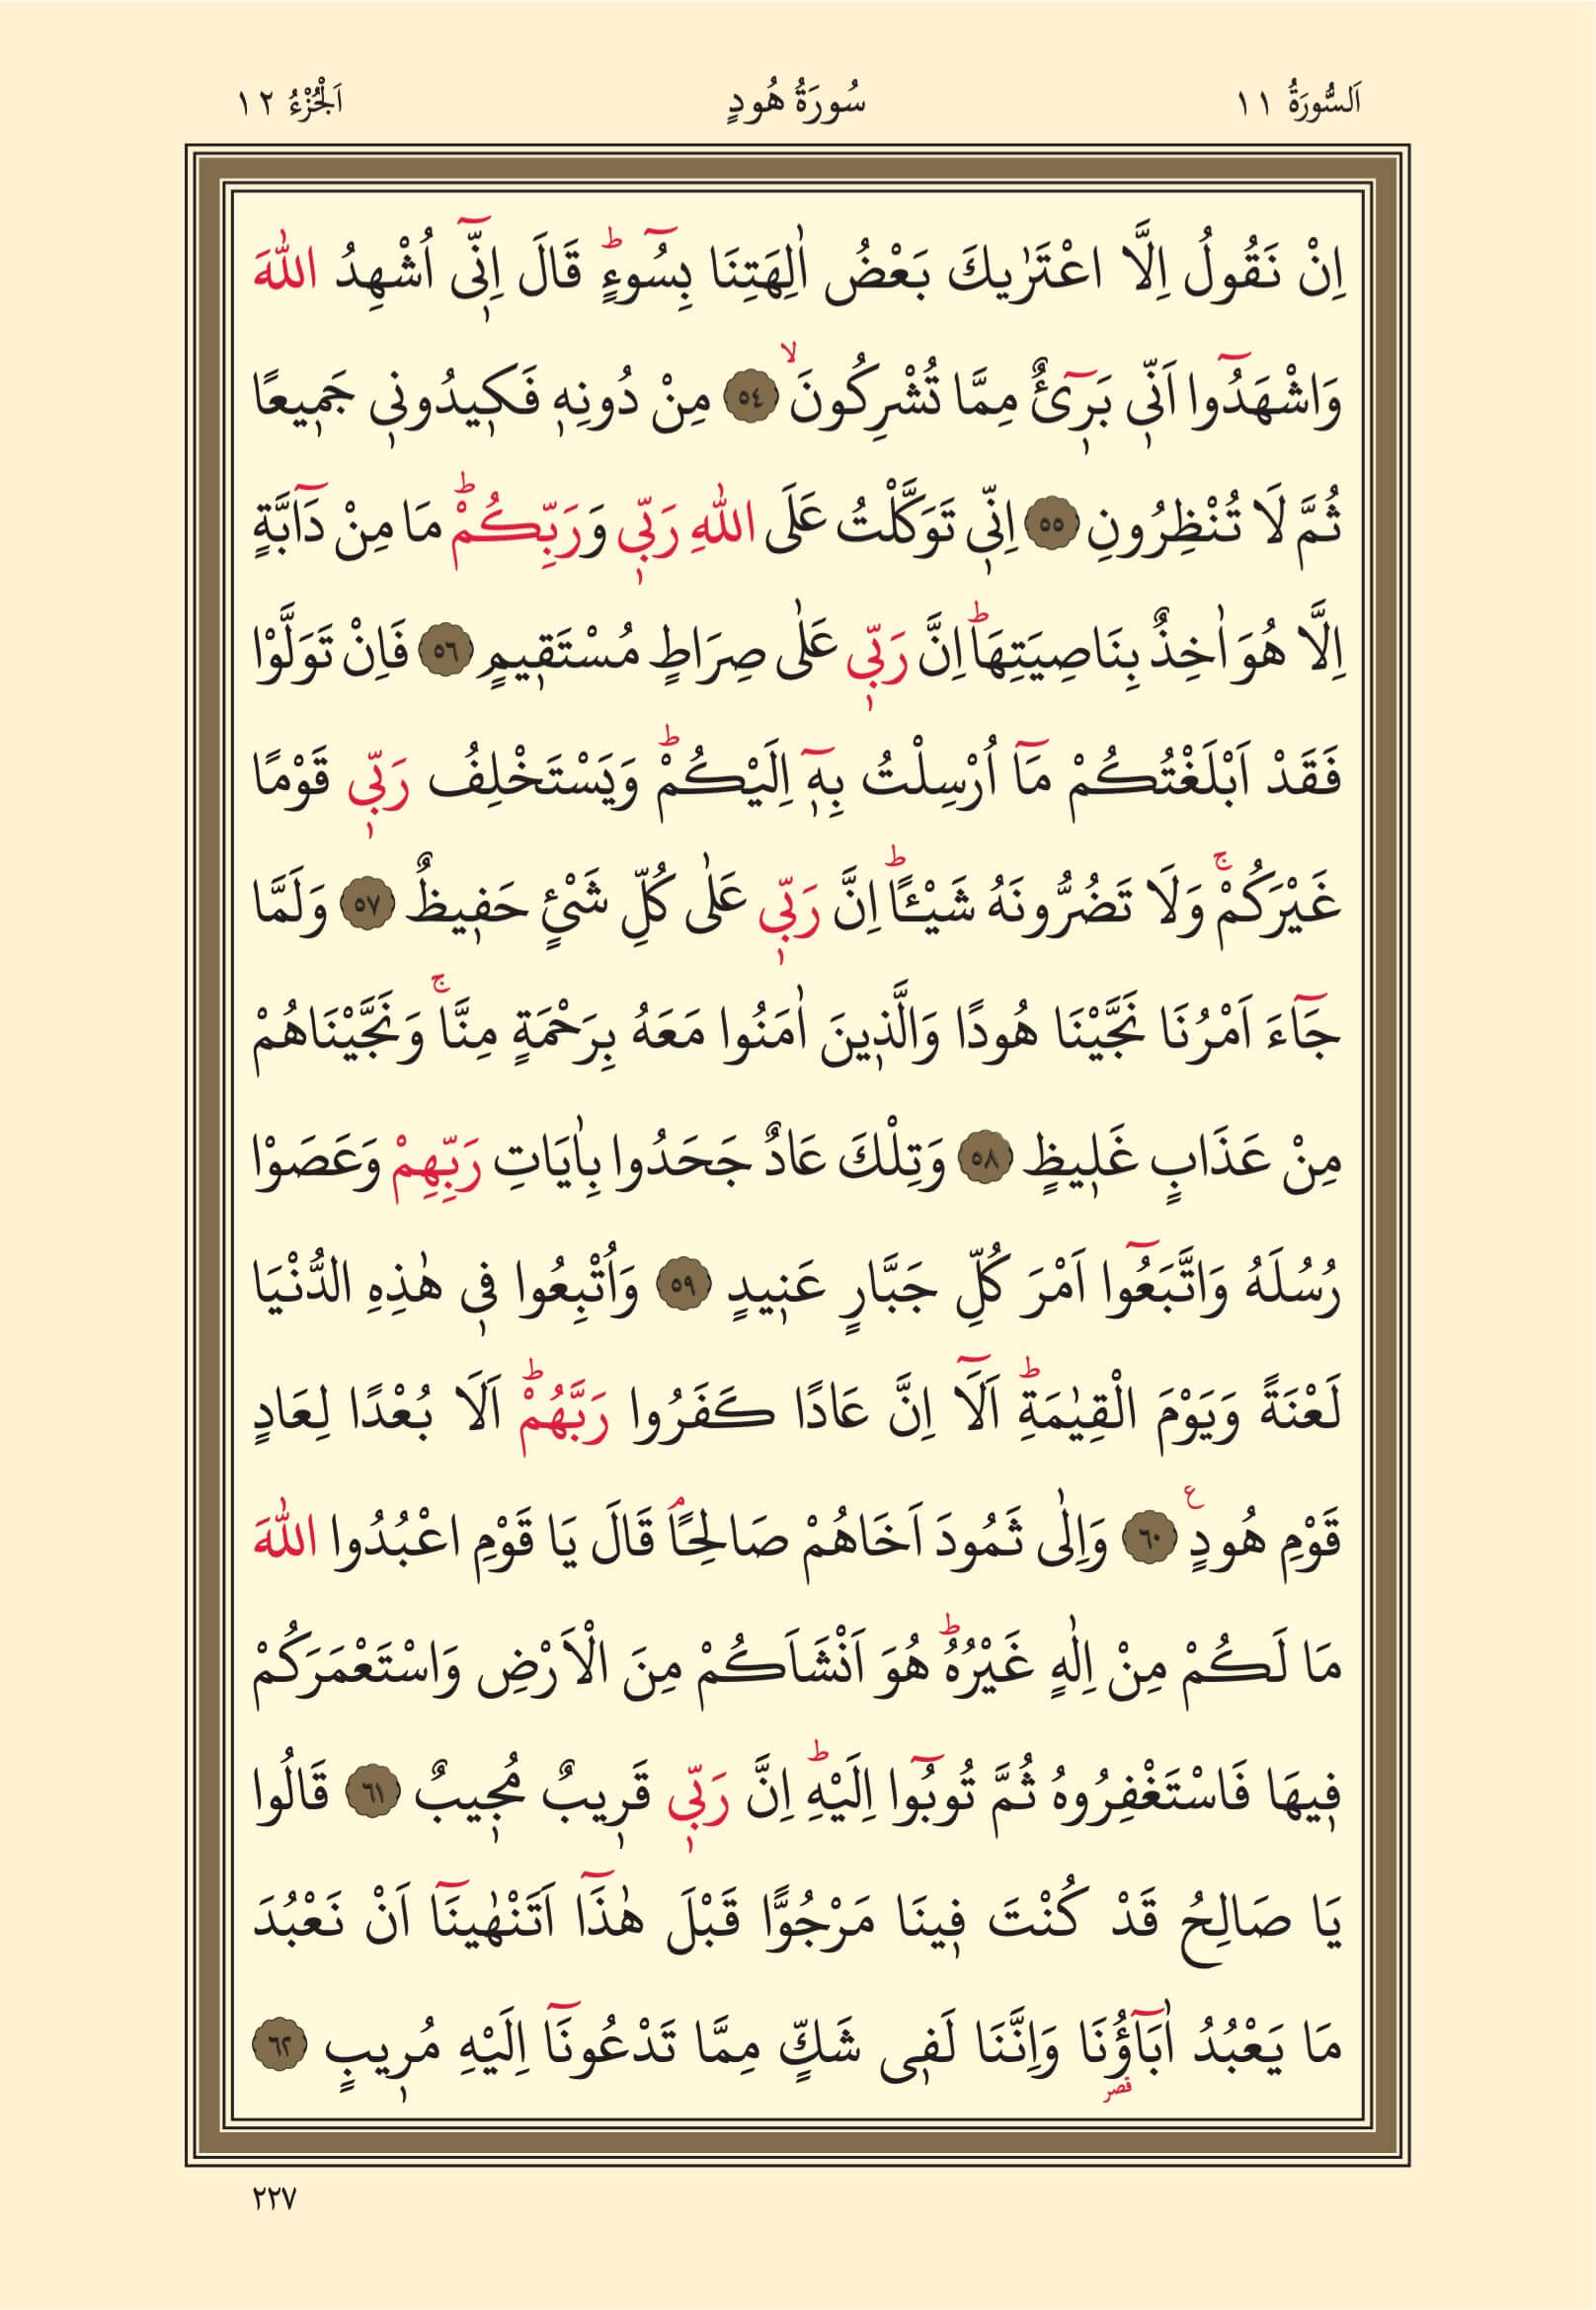 اَلسُّورَةُ ١١
سُورَةُ هُودٍ
اَلْجُزْءُ ١٢
اِنْ نَقُولُ اِلَّا اعْتَرٰيكَ بَعْضُ اٰلِهَتِنَا بِسُٓوءٍۜ قَالَ اِنّ۪ٓي اُشْهِدُ اللّٰهَ
وَاشْهَدُٓوا اَنّ۪ي بَر۪ٓيءٌ مِمَّا تُشْرِكُونَۙ ٥٤ مِنْ دُونِه۪ فَك۪يدُون۪ي جَم۪يعًا
ثُمَّ لَا تُنْظِرُونِ ٥٥ اِنّ۪ي تَوَكَّلْتُ عَلَى اللّٰهِ رَبّ۪ي وَرَبِّكُمْۜ مَا مِنْ دَٓابَّةٍ
اِلَّا هُوَ اٰخِذٌ بِنَاصِيَتِهَاۜ اِنَّ رَبّ۪ي عَلٰى صِرَاطٍ مُسْتَق۪يمٍ ٥٦ فَاِنْ تَوَلَّوْا
فَقَدْ اَبْلَغْتُكُمْ مَٓا اُرْسِلْتُ بِه۪ٓ اِلَيْكُمْۜ وَيَسْتَخْلِفُ رَبّ۪ي قَوْمًا
غَيْرَكُمْۚ وَلَا تَضُرُّونَهُ شَيْـًٔاۜ اِنَّ رَبّ۪ي عَلٰى كُلِّ شَيْءٍ حَف۪يظٌ ٥٧ وَلَمَّا
جَٓاءَ اَمْرُنَا نَجَّيْنَا هُودًا وَالَّذ۪ينَ اٰمَنُوا مَعَهُ بِرَحْمَةٍ مِنَّاۚ وَنَجَّيْنَاهُمْ
مِنْ عَذَابٍ غَل۪يظٍ ٥٨ وَتِلْكَ عَادٌ جَحَدُوا بِاٰيَاتِ رَبِّهِمْ وَعَصَوْا
رُسُلَهُ وَاتَّبَعُٓوا اَمْرَ كُلِّ جَبَّارٍ عَن۪يدٍ ٥٩ وَاُتْبِعُوا ف۪ي هٰذِهِ الدُّنْيَا
لَعْنَةً وَيَوْمَ الْقِيٰمَةِۜ اَلَٓا اِنَّ عَادًا كَفَرُوا رَبَّهُمْۜ اَلَا بُعْدًا لِعَادٍ
قَوْمِ هُودٍ۟ ٦٠ وَاِلٰى ثَمُودَ اَخَاهُمْ صَالِحًاۢ قَالَ يَا قَوْمِ اعْبُدُوا اللّٰهَ
مَا لَكُمْ مِنْ اِلٰهٍ غَيْرُهُۜ هُوَ اَنْشَاَكُمْ مِنَ الْاَرْضِ وَاسْتَعْمَرَكُمْ
ف۪يهَا فَاسْتَغْفِرُوهُ ثُمَّ تُوبُٓوا اِلَيْهِۜ اِنَّ رَبّ۪ي قَر۪يبٌ مُج۪يبٌ ٦١ قَالُوا
يَا صَالِحُ قَدْ كُنْتَ ف۪ينَا مَرْجُوًّا قَبْلَ هٰذَٓا اَتَنْهٰينَٓا اَنْ نَعْبُدَ
مَا يَعْبُدُ اٰبَٓاؤُ۬نَا وَاِنَّنَا لَف۪ي شَكٍّ مِمَّا تَدْعُونَٓا اِلَيْهِ مُر۪يبٍ ٦٢
قصر
٢٢٧